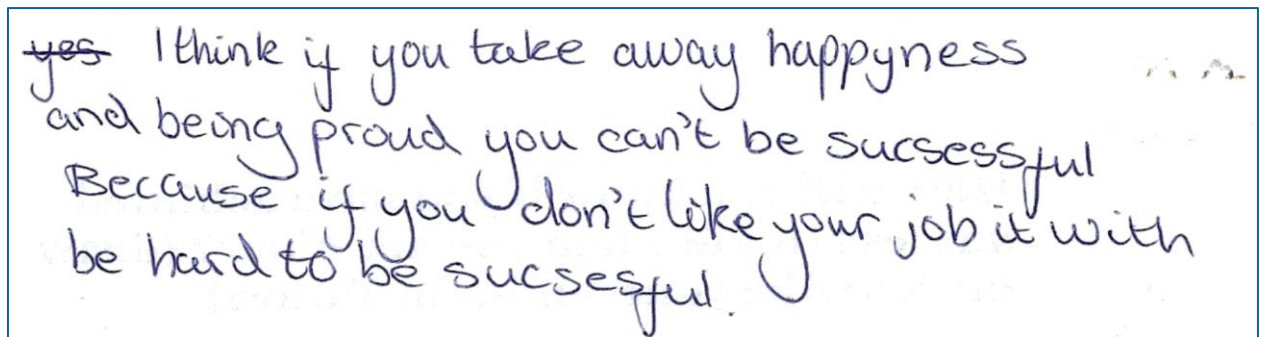 yes I think if you take away happyness
and being proud you can't be sucsessful
Because if you don't like your job it with
be hard to be sucsesful.